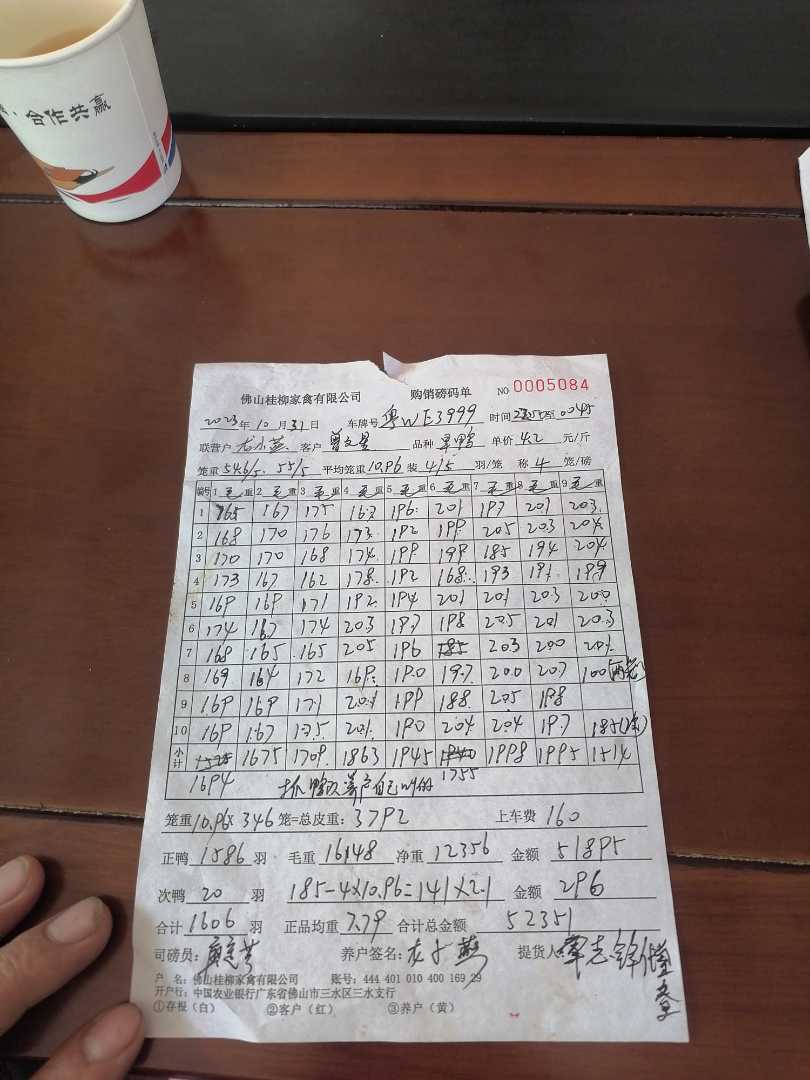 合作共赢
佛山桂柳家禽有限公司 购销磅码单 NO 0005084
2023年10月31日 车牌号 粤WE3999 时间 至0045
联营户 客户 曾文星 品种 单价 4.2 元/斤
笼重 54.6/5. 55/5 平均笼重 10.96 装 4/5 羽/笼 称 4 笼/磅
编号 1毛重 2毛重 3毛重 4毛重 5毛重 6毛重 7毛重 8毛重 9毛重
1 165 167 175 167 196 201 197 201 203
2 168 170 176 173 192 199 205 203 204
3 170 170 168 174 199 199 185 194 204
4 173 167 162 178 192 168 193 191 199
5 169 169 171 192 194 201 201 203 200
6 174 167 174 203 197 198 205 201 203
7 168 165 165 205 196 185 203 200 201
8 169 164 172 169 190 197 200 207 100(两笼)
9 169 169 171 201 199 188 205 198
10 169 167 175 201 190 204 204 197 185(次)
小计 1675 1709 1863 1945 1940 1998 1995 1514
1694 抓鸭 养户自己叫的 1755
笼重 10.96× 346 笼=总皮重: 3792 上车费 160
正鸭 1586 羽 毛重 16148 净重 12356 金额 51895
次鸭 20 羽 185-4×10.96=141×2.1 金额 296
合计 1606 羽 正品均重 7.79 合计总金额 52351
司磅员: 养户签名: 提货人:
户 名: 佛山桂柳家禽有限公司 账号: 444 401 010 400 169 29
开户行: 中国农业银行广东省佛山市三水区三水支行
①存根(白) ②客户(红) ③养户(黄)